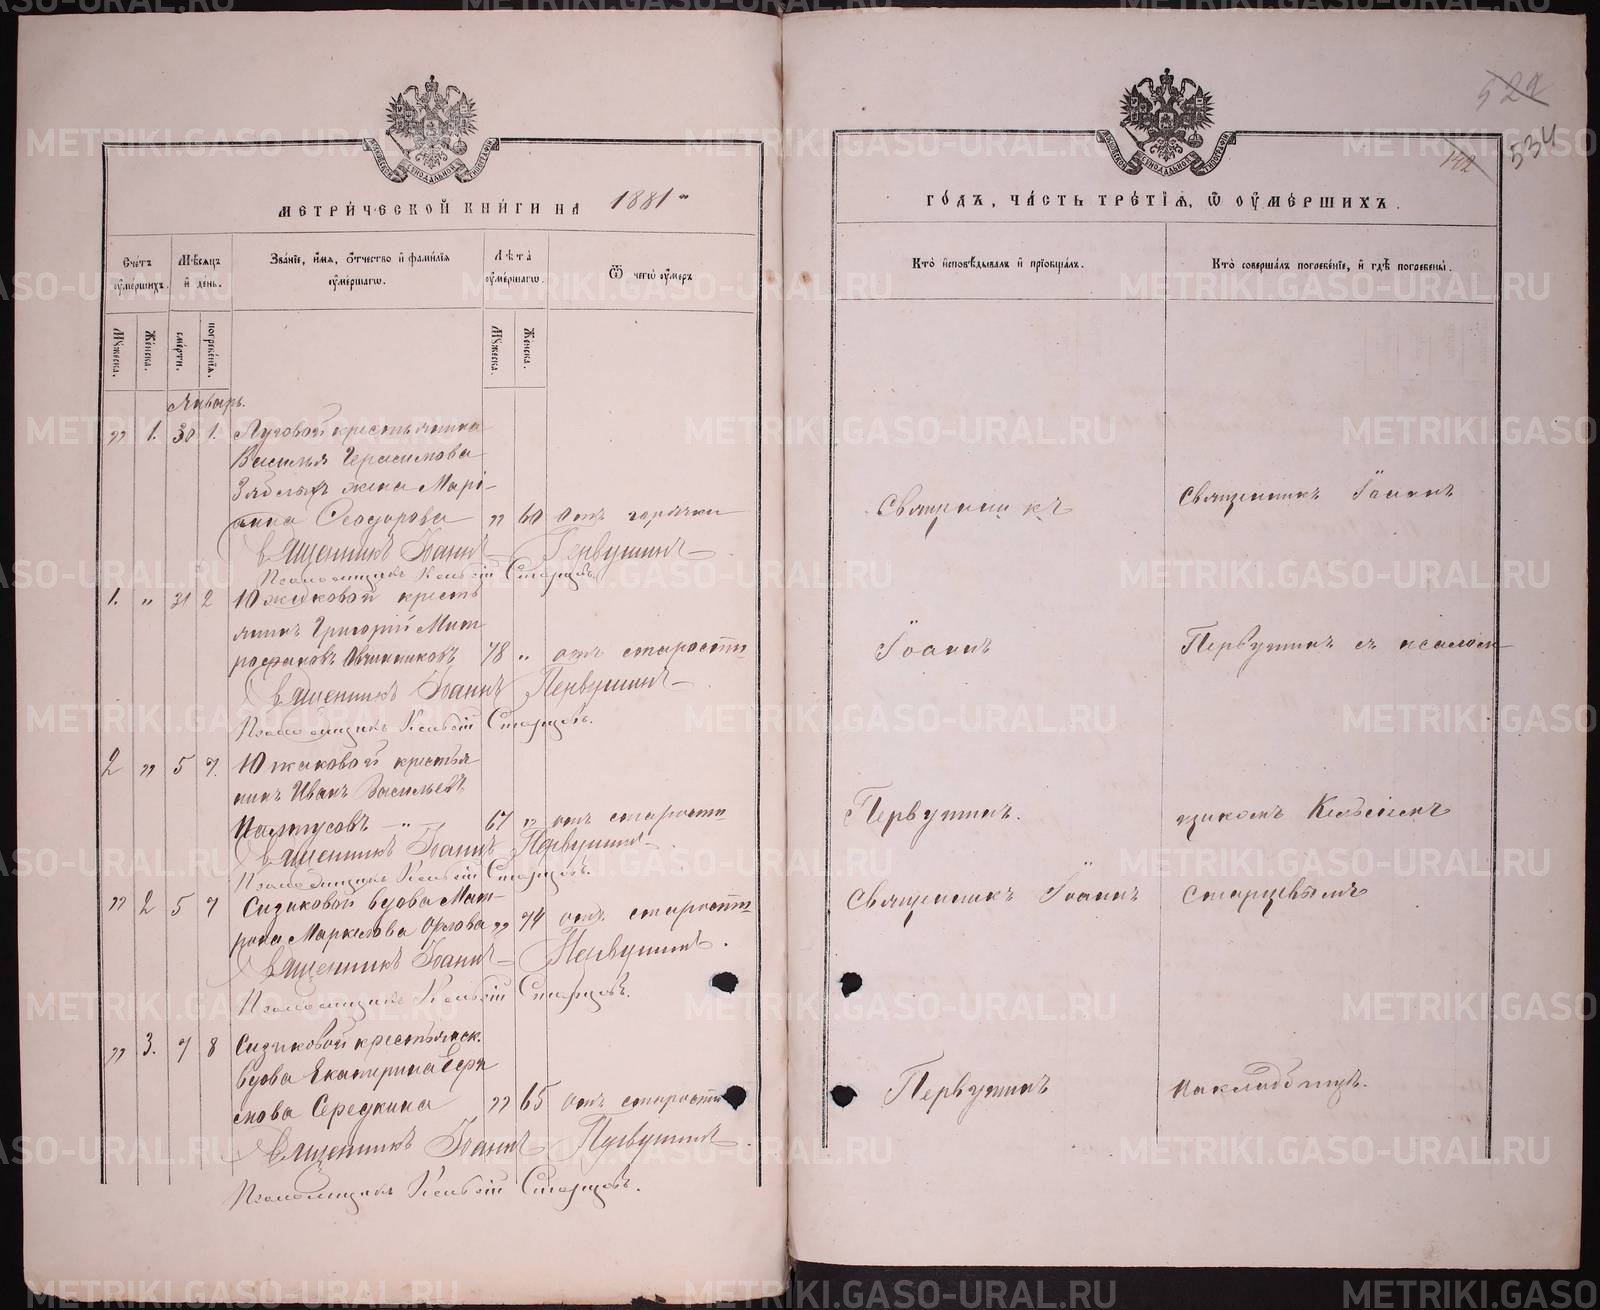 МЕТРИЧЕСКОЙ КНИГИ НА 1881
Счетъ умершихъ.
Мѣсяцъ и день.
Званіе, имя, отчество и фамилія умершаго.
Лѣта умершаго.
Ѿ чегѡ умеръ
Мужеска.
Женска.
смерти.
погребенія.
Мужеска.
Женска.
Январь.
" 1. 30 1. Луговой крестьянина
Василья Герасимова
Зяблыхъ жена Марі-
анна Ѳеодорова " 60 отъ горячки
Священникъ Іоаннъ Первушинъ
Псаломщикъ Старцевъ
1. " 31 2 Южаковой кресть
янинъ Григорій Мит
рофановъ Овчинниковъ 78 " отъ старости
Священникъ Іоаннъ Первушинъ
Псаломщикъ Старцевъ.
2 " 5 7. Южаковой крестья
нинъ Иванъ Васильевъ
Палтусовъ — " — 67 " отъ старости
Священникъ Іоаннъ Первушинъ
Псаломщикъ Старцевъ.
" 2 5 7 Сизиковой вдова Мат-
рона Маркелова Орлова " 74 отъ старости
Священникъ Іоаннъ Первушинъ.
Псаломщикъ Старцевъ.
" 3. 7 8 Сизиковой крестьянск.
вдова Екатерина
Середкина " 65 отъ старости
Священникъ Іоаннъ Первушинъ.
Псаломщикъ Старцевъ.
522
142
534
ГОДЪ, ЧАСТЬ ТРЕТІЯ, Ѿ УМЕРШИХЪ.
Кто исповѣдывалъ и пріобщалъ.
Кто совершалъ погребеніе, и гдѣ погребены.
Священникъ
Іоаннъ
Первушинъ.
Священникъ Іоаннъ
Первушинъ
Священникъ Іоаннъ
Первушинъ съ псалом-
щикомъ
Старцевымъ
на кладбищѣ.
METRIKI.GASO-URAL.RU